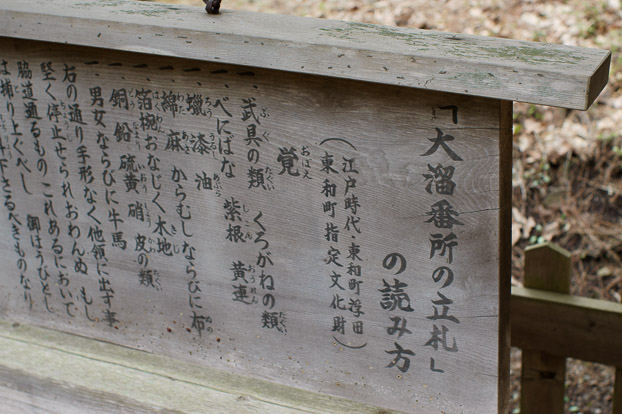 「大溜番所の立札」
の読み方
(江戸時代・東和町浮田
東和町指定文化財)
覚
一 武具の類 くろがねの類
一 べにはな 紫根 黄連
一 蠟 漆 油
一 綿 麻 からむしならびに布
一 箔椀おなじく木地
一 銅 鉛 硫黄 硝 皮の類
一 男女ならびに牛馬
右の通り手形なく他領に出す事
堅く停止せられおわんぬ もし
脇道通るもの これあるにおいて
は捕り上ぐべし 御ほうびとし
下さるべきものなり